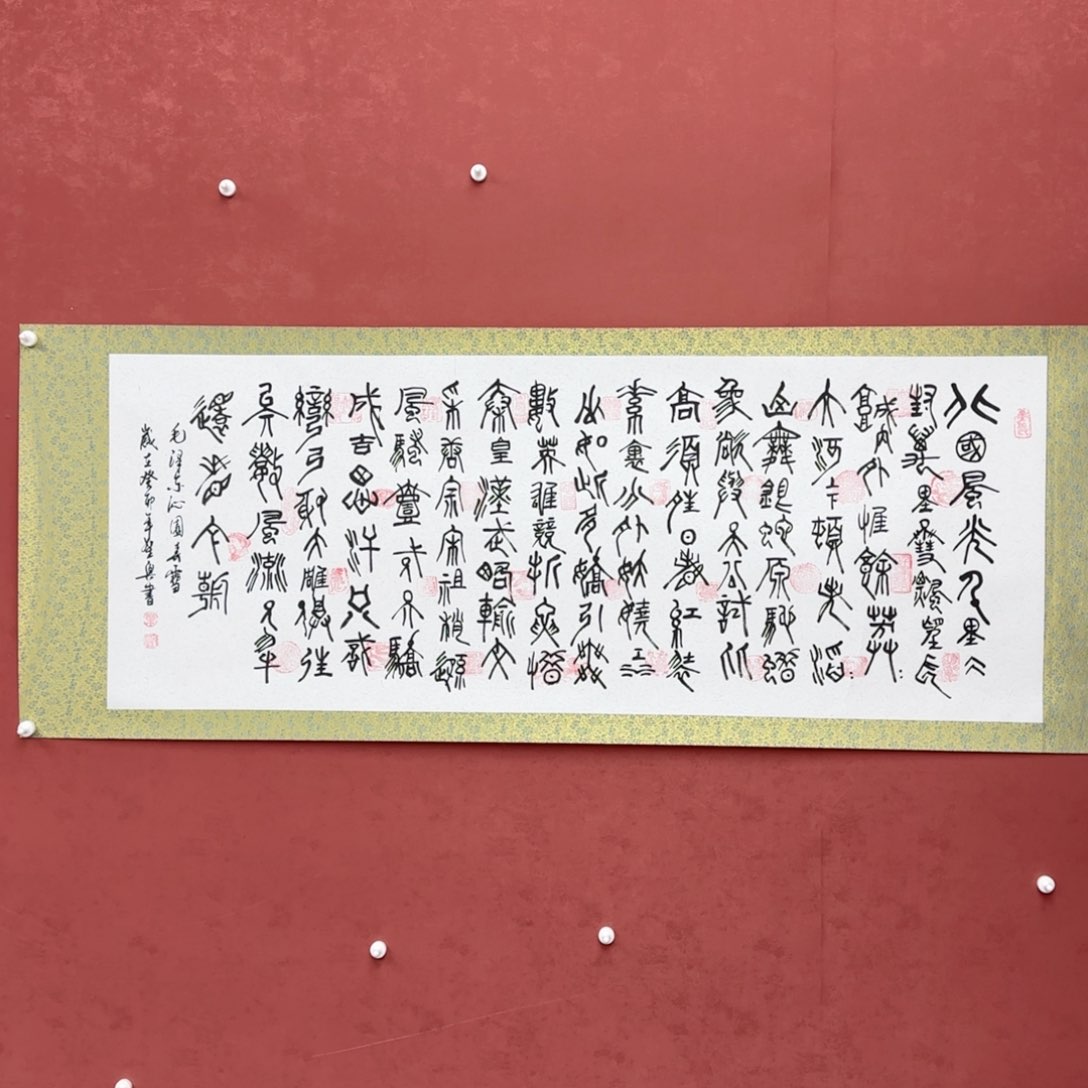 北國風光千里冰
封萬里雪飄望長
城内外惟餘莽:
大河上下頓失滔:
山舞銀蛇原馳蠟
象欲與天公試比
高須晴日看紅裝
素裹分外妖嬈江
山如此多嬌引無
數英雄競折腰惜
秦皇漢武略輸文
采唐宗宋祖稍遜
風騷壹代天驕
成吉思汗只識
彎弓射大雕俱往
矣數風流人物
還看今朝
毛澤東沁園春雪
歲在癸卯年書